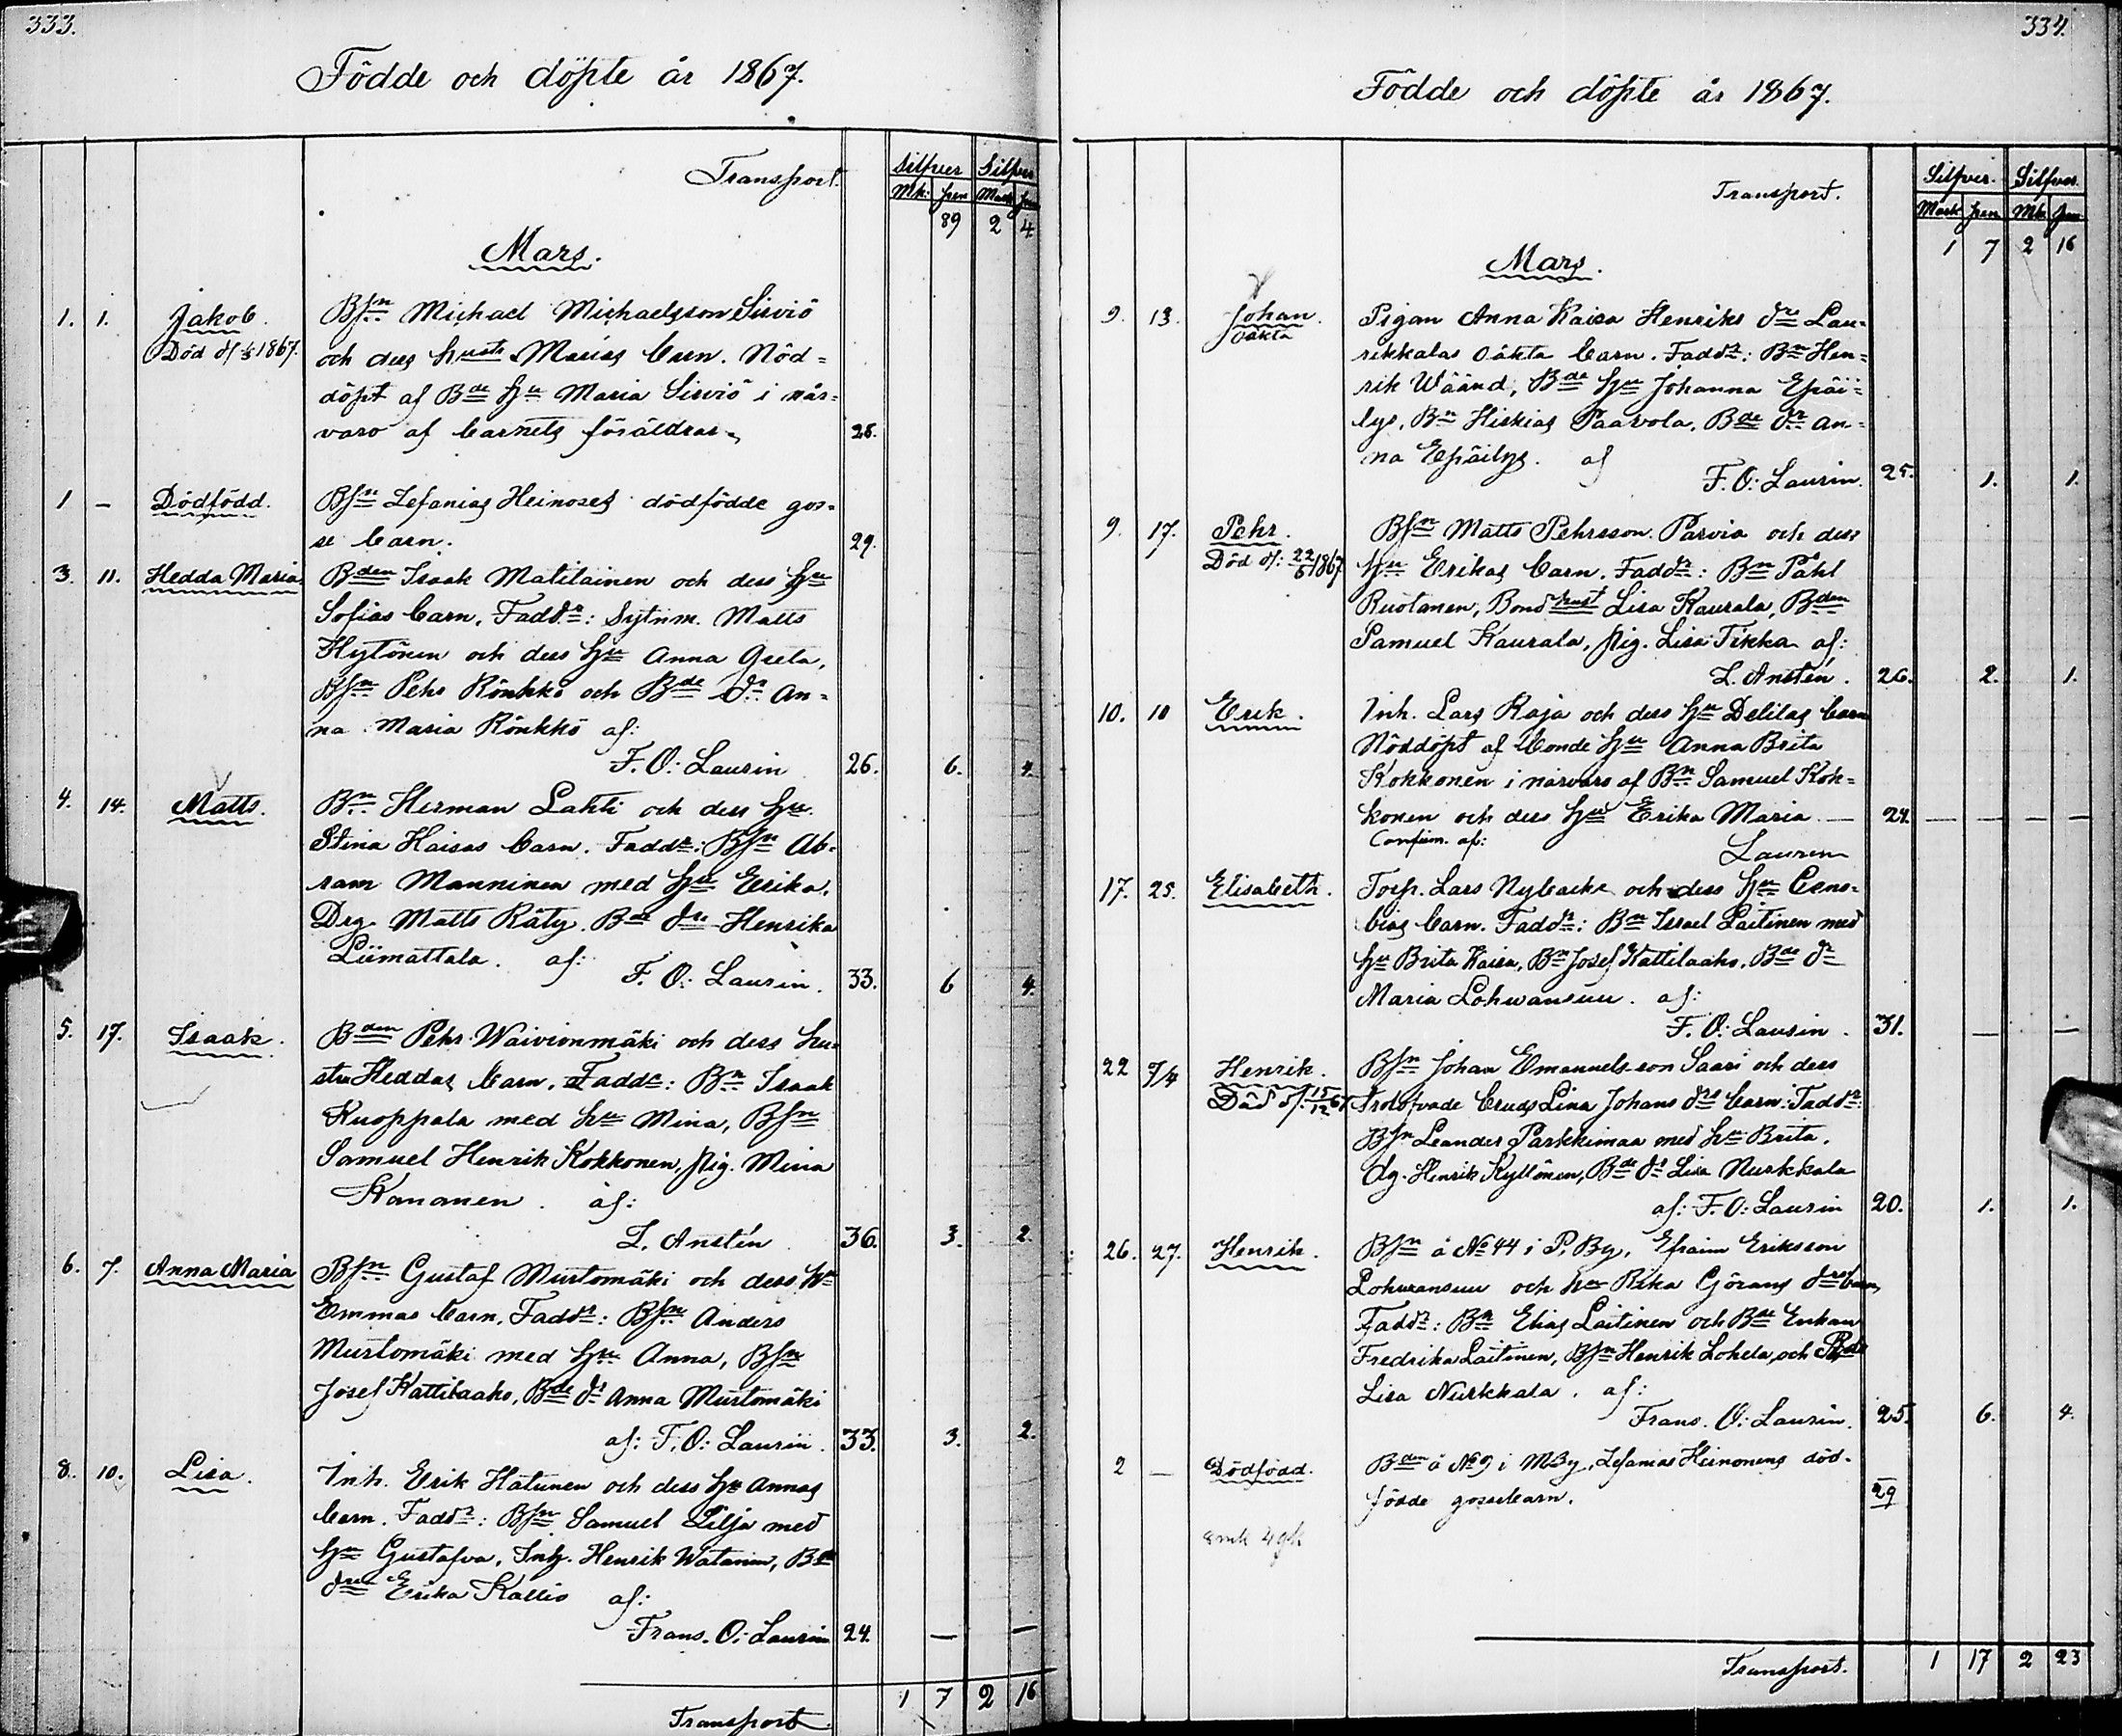 333.
Födde och döpte år 1867.
Transport.
Silfver Silfver
Mk: pen Mark pen
89 2 4
Mars.
1. 1. Jakob. Bsn Michael Michaelsson Sirviö
Död d/ 1867. och dess hustr Marias barn. Nöd=
döpt af Bde Hu Maria Sirviö i när=
varo af barnets föräldrar. 28.
1 - Dödfödd. Bsn Zefanias Heinoses dödfödde gos=
se barn. 29.
3. 11. Hedda Maria Bden Isaak Matilainen och dess Hu
Sofias barn. Faddr: Sytnm. Matts
Hytönen och dess Hu Anna Greta,
Bsn Pehr Rönkkö och Bde dr An=
na Maria Rönkkö af:
F. O: Laurin 26. 6. 4.
4. 14. Matts. Bn Herman Lahti och dess Hu
Stina Kaisas barn. Faddr: Bsn Ab=
ram Manninen med Hu Erika,
Drg. Matts Räty. Bde dr Henrika
Liimattala. af:
F. O: Laurin. 33. 6 4.
5. 17. Isaak. Bden Pehr Waivionmäki och dess hu=
stru Heddas barn. Faddr: Bn Isaak
Kuoppala med hu Mina, Bsn
Samuel Henrik Kokkonen, pig. Mina
Kananen. af:
L. Anstén 36. 3. 2.
6. 7. Anna Maria Bsn Gustaf Murtomäki och dess hu
Emmas barn. Faddr: Bsn Anders
Murtomäki med Hu Anna, Bsn
Josef Kattilaaho, Bde dr Anna Murtomäki
af: F. O: Laurin. 33. 3. 2.
8. 10. Lisa. Inh. Erik Hätunen och dess Hu Annas
barn. Faddr: Bsn Samuel Lilja med
Hu Gustafva, Inh. Henrik Watanen, Bde
dr Erika Kallio af:
Frans. O: Laurin 24. — —
Transport. 1 7 2 16
334.
Födde och döpte år 1867.
Transport.
Silfver. Silfver
Mark pen Mk pen
1 7 2 16
Mars.
9. 13. Johan. Pigan Anna Kaisa Henriks dr Lau=
oäkta rikkalas oäkta barn. Faddr: Bn Hen=
rik Wäänd, Bde Hu Johanna Epäi=
lys, Bn Hiskias Paavola, Bde dr An=
na Epäilys. af
F. O: Laurin. 25. 1. 1.
9. 17. Pehr. Bsn Matts Pehrsson Parvia och dess
Död d/: 22/6 1867 Hu Erikas barn. Faddr: Bn Påhl
Ruotanen, Bond hust Lisa Kaurala, Bden
Samuel Kaurala, pig. Lisa Tikka af:
L. Anstén. 26. 2. 1.
10. 10 Erik. Inh. Lars Raja och dess Hu Delilas barn
Nöddöpt af bonde Hu Anna Brita
Kokkonen i närvaro af Bn Samuel Kok=
konen och dess Hu Erika Maria — 24. — — — —
Confirm. af:
Laurin
17. 25. Elisabeth. Torp. Lars Nybacka och dess Hu Ceno=
bias barn. Faddr: Bn Israel Laitinen med
Hu Brita Kaisa, Bn Josef Kattilaaho, Bde dr
Maria Lohwansuu. af:
F. O: Laurin. 31. — —
22 7/4 Henrik. Bsn Johan Emanuels-son Saari och dess
Död d/: 15/12 67 trolofvade brud Lina Johans drs barn: Faddr:
Bsn Leander Parkkimaa med hu Brita,
dg. Henrik Kyllönen, Bde dr Lisa Nurkkala
af: F. O: Laurin 20. 1. 1.
26. 27. Henrik. Bsn å No 44 i P. By, Efraim Eriksson
Lohwansuu och hu Rika Görans drs barn,
Faddr: Bn Elias Laitinen och Bde Enkan
Fredrika Laitinen, Bsn Henrik Lohela, och Bde
Lisa Nurkkala. af:
Frans. O: Laurin. 25. 6. 4.
2 — Dödfödd. Bden å No 9 i MBy, Zefanias Heinonens död=
födde gossebarn. 29
Transport. 1 17 2 23